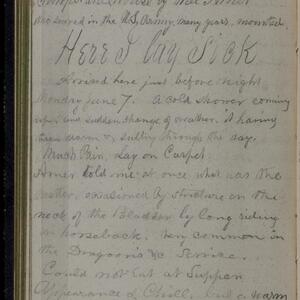 who served in the U.S. Army, many years, mounted
Here I lay Sick
Arrived here just before night
Monday June 7. A cold shower coming
up, and sudden change of weather. It having
been warm & sultry through the day.
Much Pain, Lay on Carpet
told me at once what was the
matter, occasioned by stricture on the
neck of the Bladder by long riding
on horseback. Very common in
the Dragoon's &c Service.
Could not eat at Supper
Appearance of Chill, had a warm